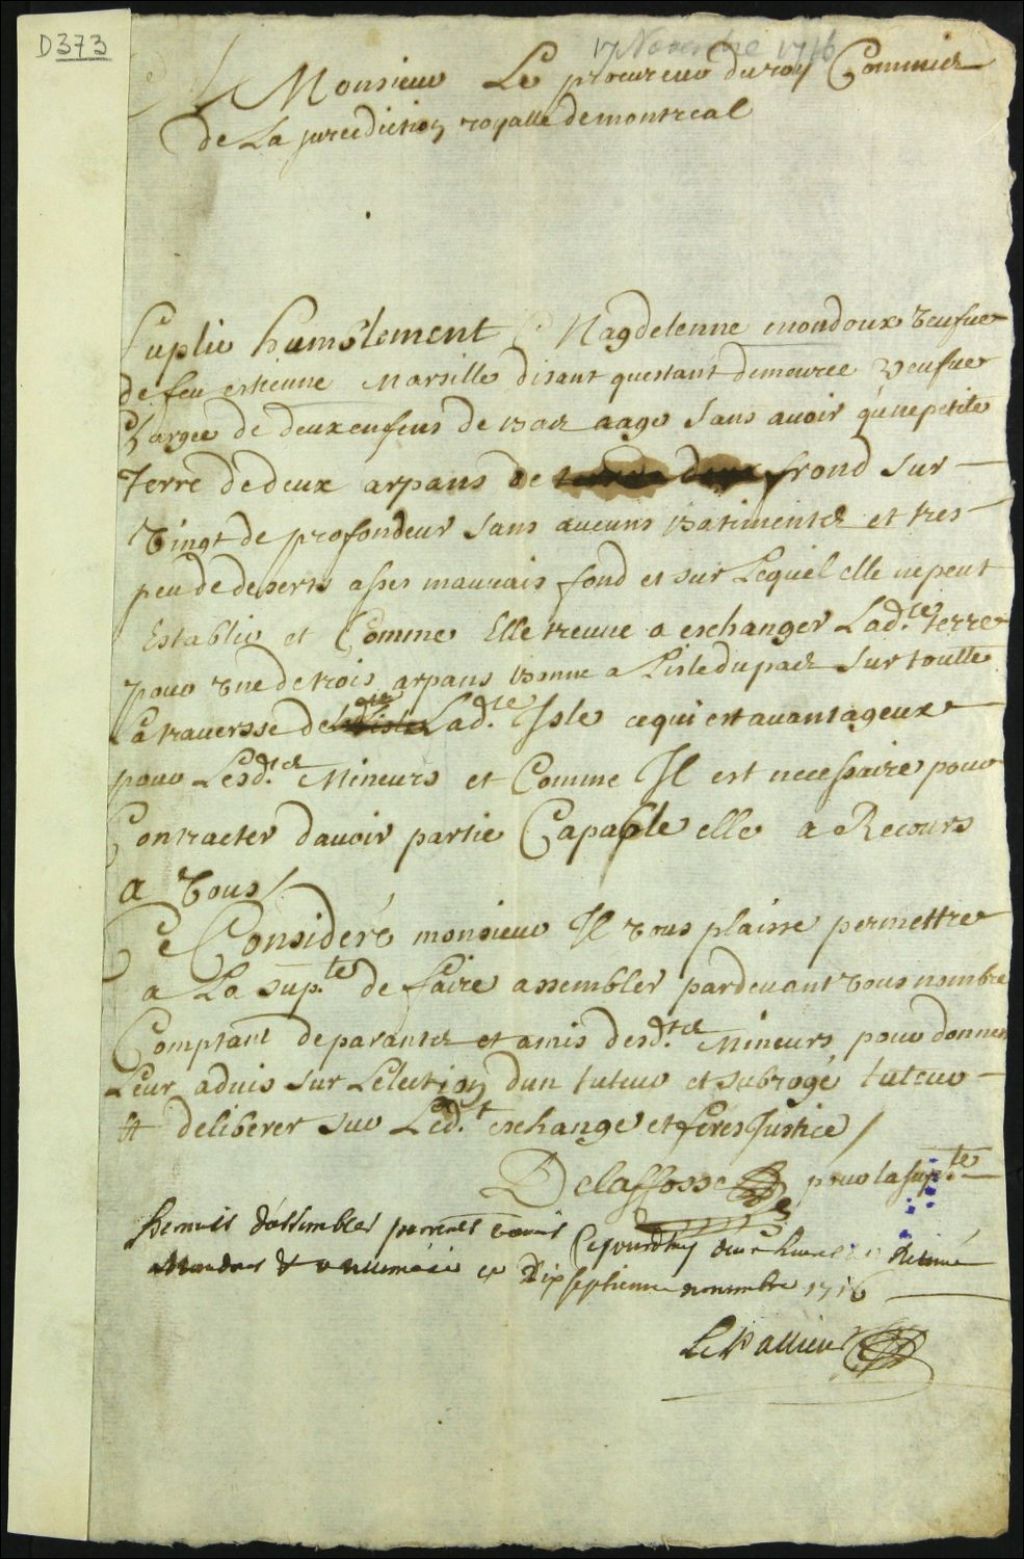 D373
17 Novembre 1716
A Monsieur Le procureur du roy Commis
de La jurediction royalle de montreal
Suplie humblement Magdelenne mondoux veufue
de feu estienne Marsille disant questant demeuree veufue
Chargee de deux enfens de bas aage sans auoir qu'une petite
Terre de deux arpans de frond sur
vingt de profondeur sans aucuns batiments et tres
peu de deserts asses mauuais fond et sur Lequel elle ne peut
Establir et Comme Elle treuue a eschanger Lad.te terre
pour une de trois arpans bonne a Lisle du pads sur toutte
La trauersse de Lad.te Isle ce qui est auantageux
pour Lesd.ts Mineurs et Comme Il est necessaire pour
Contracter dauoir partie Capable elle a Recours
a vous /
Ce Consideré monsieur Il vous plaisse permettre
a La sup.te de faire assembler pardeuant vous nombre
Comptant de parants et amis desd.ts Mineurs pour donner
Leur aduis sur Lelection dun tuteur et subrogé tuteur
Et deliberer sur Led.t eschange et feres Justice /
Delaffosse pour la sup.te
Permis dassembler parents & amis Cejourdhuy deux heures
Mandons & ce Dix septieme nouembre 1716
Le Pallieur